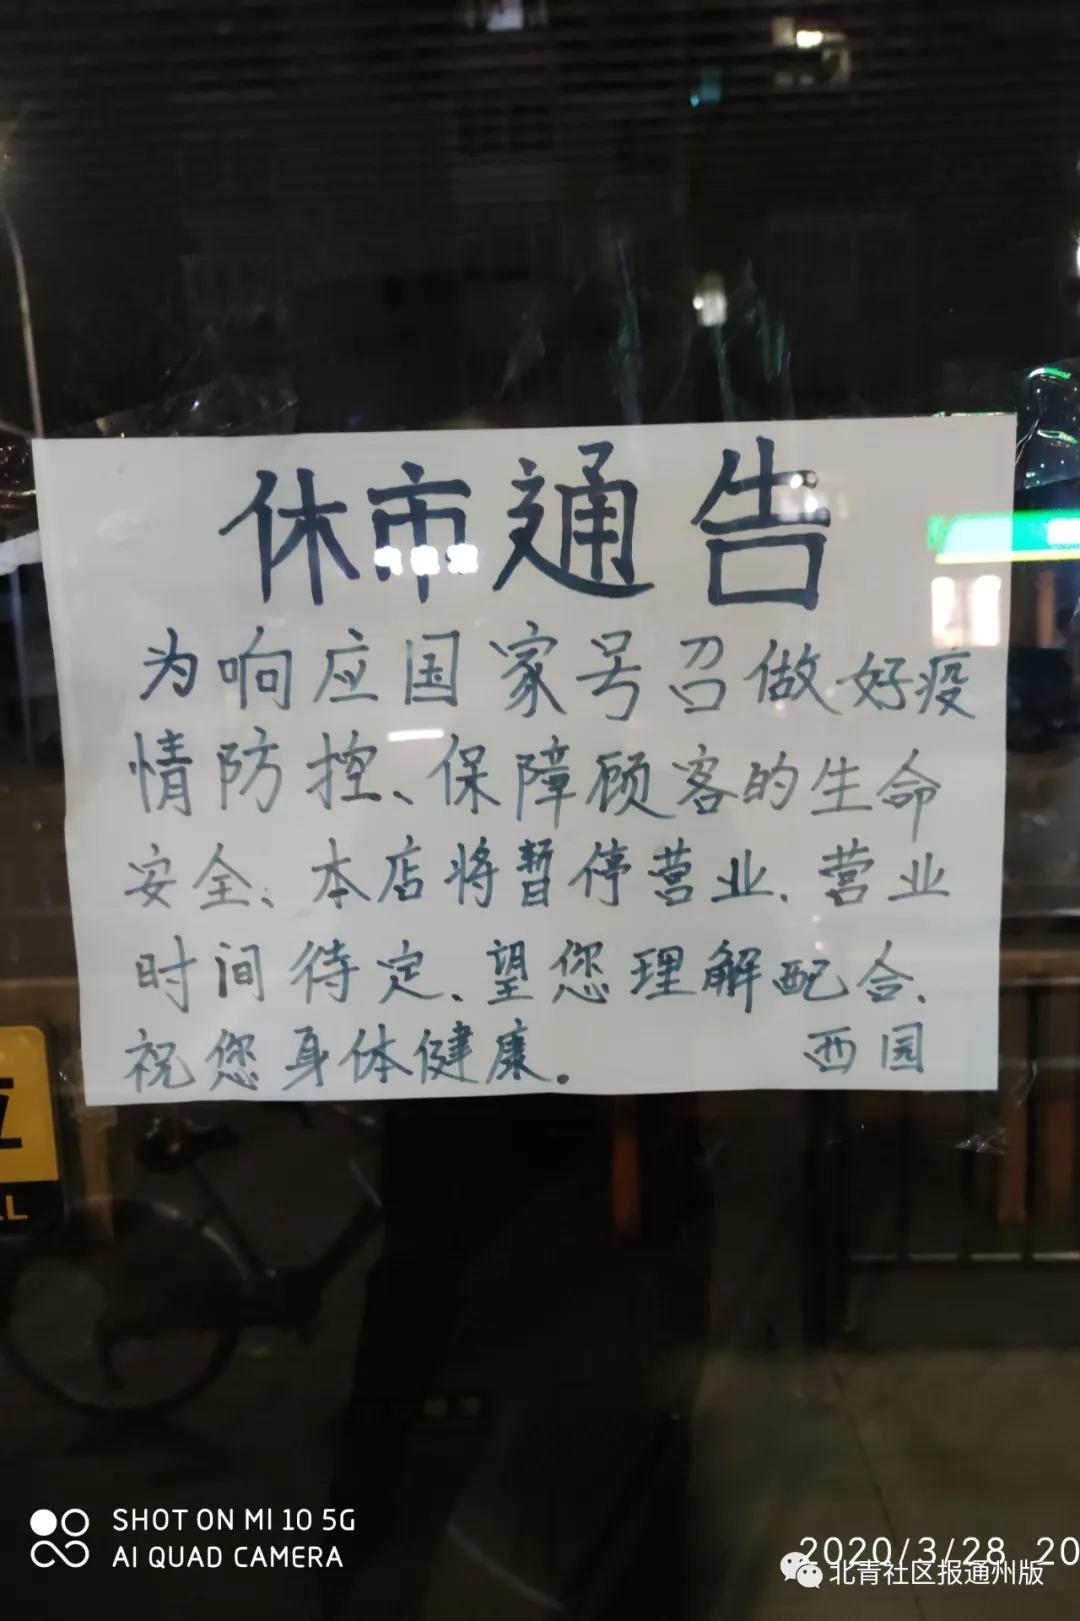 休市通告
为响应国家号召做好疫
情防控、保障顾客的生命
安全、本店将暂停营业、营业
时间待定、望您理解配合、
祝您身体健康。 西园
立
LL
SHOT ON MI 10 5G
AI QUAD CAMERA
2020/3/28 20
北青社区报通州版